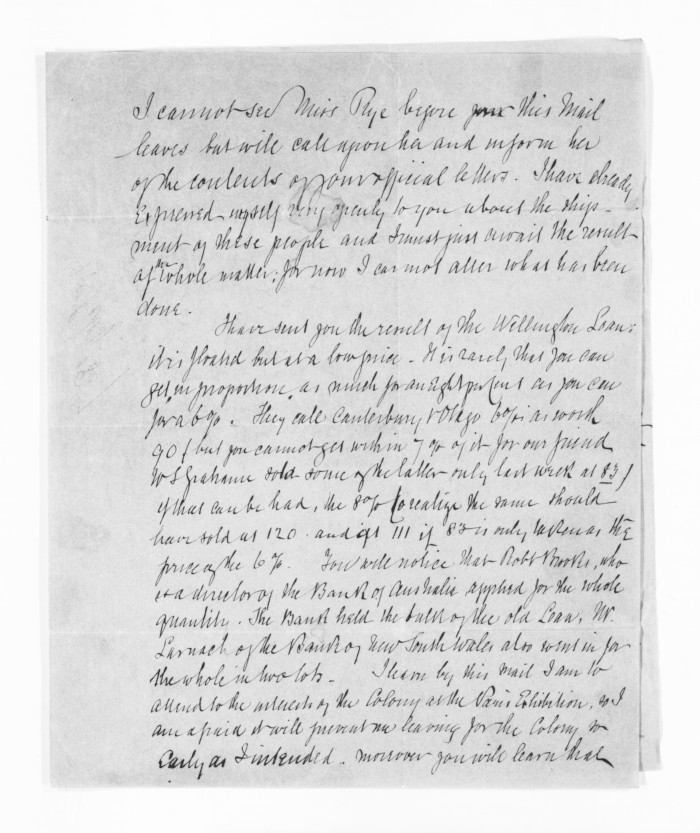 I cannot see Miss Rye before this Mail
leaves but will call upon her and inform her
of the contents of your official letters. I have already
expressed myself very openly to you about the ship-
ment of these people and I must just await the result
of the whole matter, for now I cannot alter what has been
done.
I have sent you the result of the Wellington Loan:
it is floated but at a low price. It is rarely that you can
get in proportion, as much for an Eight per Cent as you can
for a 6%. They call Canterbury & Otago 6% as worth
90/ but you cannot get within 7% of it for our friend
W S Grahame sold some of the latter only last week at 83/
if that can be had, the 8% to realize the same should
have sold at 120 and at 111 if 83 is only taken as the
price of the 6%. You will notice that Robt Brooks, who
is a director of the Bank of Australia applied for the whole
quantity. The Bank held the bulk of the old Loan, Mr.
Larnach of the Bank of New South Wales also went in for
the whole in two lots. I learn by this mail I am to
attend to the interests of the Colony at the Paris Exhibition, so I
am afraid it will prevent me leaving for the Colony so
early as I intended. Moreover you will learn that